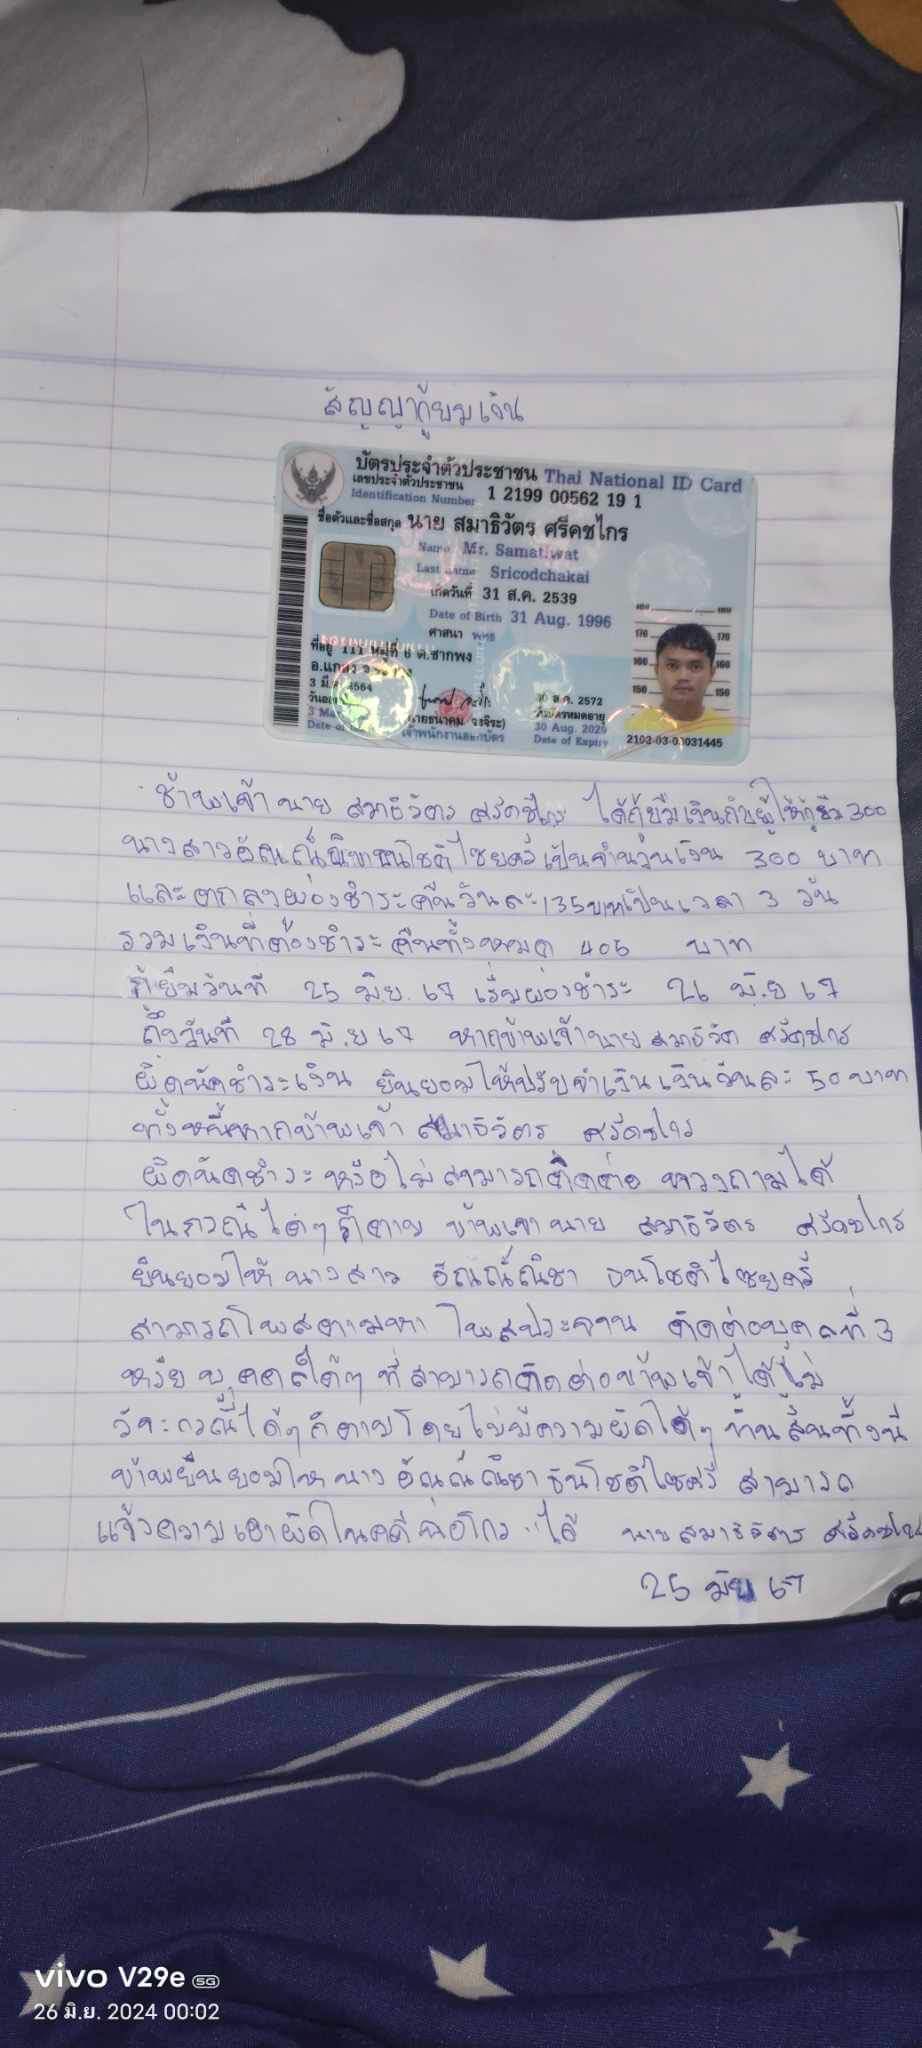 สัญญากู้ยืมเงิน
บัตรประจำตัวประชาชน Thai National ID Card
เลขประจำตัวประชาชน
Identification Number 1 2199 00562 19 1
ชื่อตัวและชื่อสกุล นาย สมาธิวัตร ศรีคชไกร
Name Mr. Samatiwat
Last name Sricodchakai
เกิดวันที่ 31 ส.ค. 2539
Date of Birth 31 Aug. 1996
ศาสนา พุทธ
ที่อยู่ 111 หมู่ที่ 6 ต.ซากพง
อ.แกลง
30 ส.ค. 2572
วันบัตรหมดอายุ
30 Aug. 2029
Date of Expiry
เจ้าพนักงานออกบัตร
180 180
170 170
160 160
150 150
2103-03-03031445
ข้าพเจ้า นาย สมาธิวัตร ศรีคชไกร ได้กู้ยืมเงินกับผู้ให้กู้ยืม 300
นางสาว เป็นจำนวนเงิน 300 บาท
และตกลงผ่องชำระคืนวันละ 135 บาทเป็นเวลา 3 วัน
รวมเงินที่ต้องชำระคืนทั้งหมด 405 บาท
กู้ยืมวันที่ 25 มิ.ย. 67 เริ่มผ่องชำระ 26 มิ.ย 67
ถึงวันที่ 28 มิ.ย 67 หากข้าพเจ้านาย สมาธิวัต ศรีคชไกร
ผิดนัดชำระเงิน ยินยอมให้ปรับจำเงินเงินวันละ 50 บาท
ทั้งหนี้หากข้าพเจ้า สมาธิวัตร ศรีคชไกร
ผิดนัดชำระ หรือไม่สามารถติดต่อ ทวงถามได้
ในกรณีใดๆ ก็ตาม ข้าพเจานาย สมาธิวัตร ศรีคชไกร
ยินยอมให้ นางสาว อัณณ์ณิชา ธนโชติไชยศรี
สามารถโพสตามหา โพสประจาน ติดต่อบุคคลที่ 3
หรือ บุคคลใดๆ ที่สามารถติดต่อข้าพเจ้าได้ไม่
ว่าจะกรณีใดๆ ก็ตามโดยไม่มีความผิดใดๆ ทั้งสิ้นทั้งนี้
ข้าพยินยอมให้ นาง อัณณ์ณิชา ธนโชติไชศรี สามารถ
แจ้งความเอาผิดในคดีฉ้อโกง ได้ นาย สมาธิวัตร ศรีคชไกร
25 มิย 67
vivo V29e 5G
26 มิ.ย. 2024 00:02